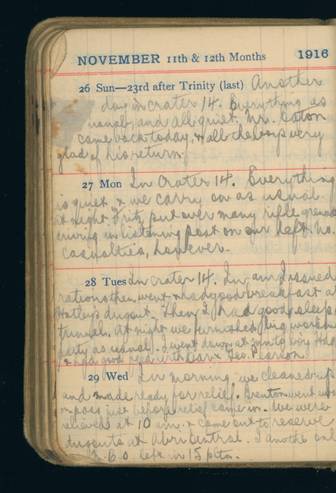 NOVEMBER 11th & 12th Months 1916
26 Sun—23rd after Trinity (last) Another
day in crater 14. Everything as
usual, and all quiet. Mr. Eaton
came back today, & all the boys very
glad of his return.
27 Mon In Crater 14. Everything
is quiet & we carry on as usual.
At night Fritz put over many rifle grenades
during in listening post on our left. No
casualties, however.
28 Tues In crater 14. In am issued
rations then went & had good breakfast at
dugout. Then I had good sleep in
tunnel. At night we furnished working
party as usual. I went down at
& had good
29 Wed In morning we cleaned up
and made ready for relief. went
on pass just before relief came in. We were
relieved at 10 am. & came out to reserve
dugouts at Central. I another
left in 15 pltn.